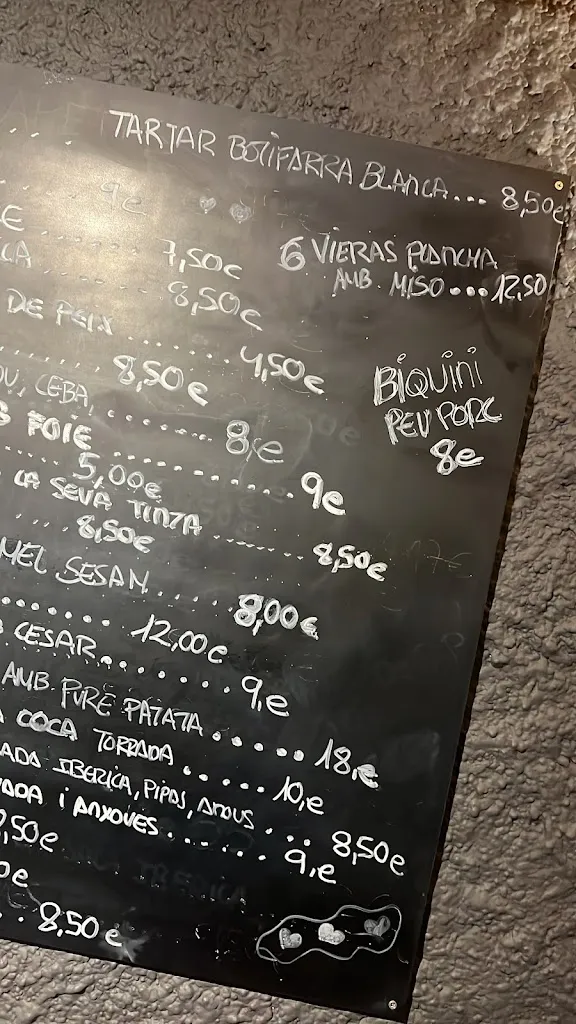 TARTAR BOTIFARRA BLANCA... 8,50€
9€
E
CA ...... 7,50€
8,50€
DE PEIX ...... 4,50€
...... 8,50€
OU, CEBA, ........ 8,€
B FOIE ........ 9€
5,00€
LA SEVA TINTA ........ 8,50€
.... 8,50€
MEL SESAM..... 8,00€
...... 12,00€
CESAR....... 9,€
AMB PURÉ PATATA...... 18,€
A COCA TORRADA ...... 10,€
ADA IBERICA, PIPAS, ANOUS ... 8,50€
ADA I ANXOVES....... 9,€
8,50€
0€
.. 8,50€
6 VIERAS PLANCHA
AMB. MISO...12,50
BIQUINI
PEU PORC
8€